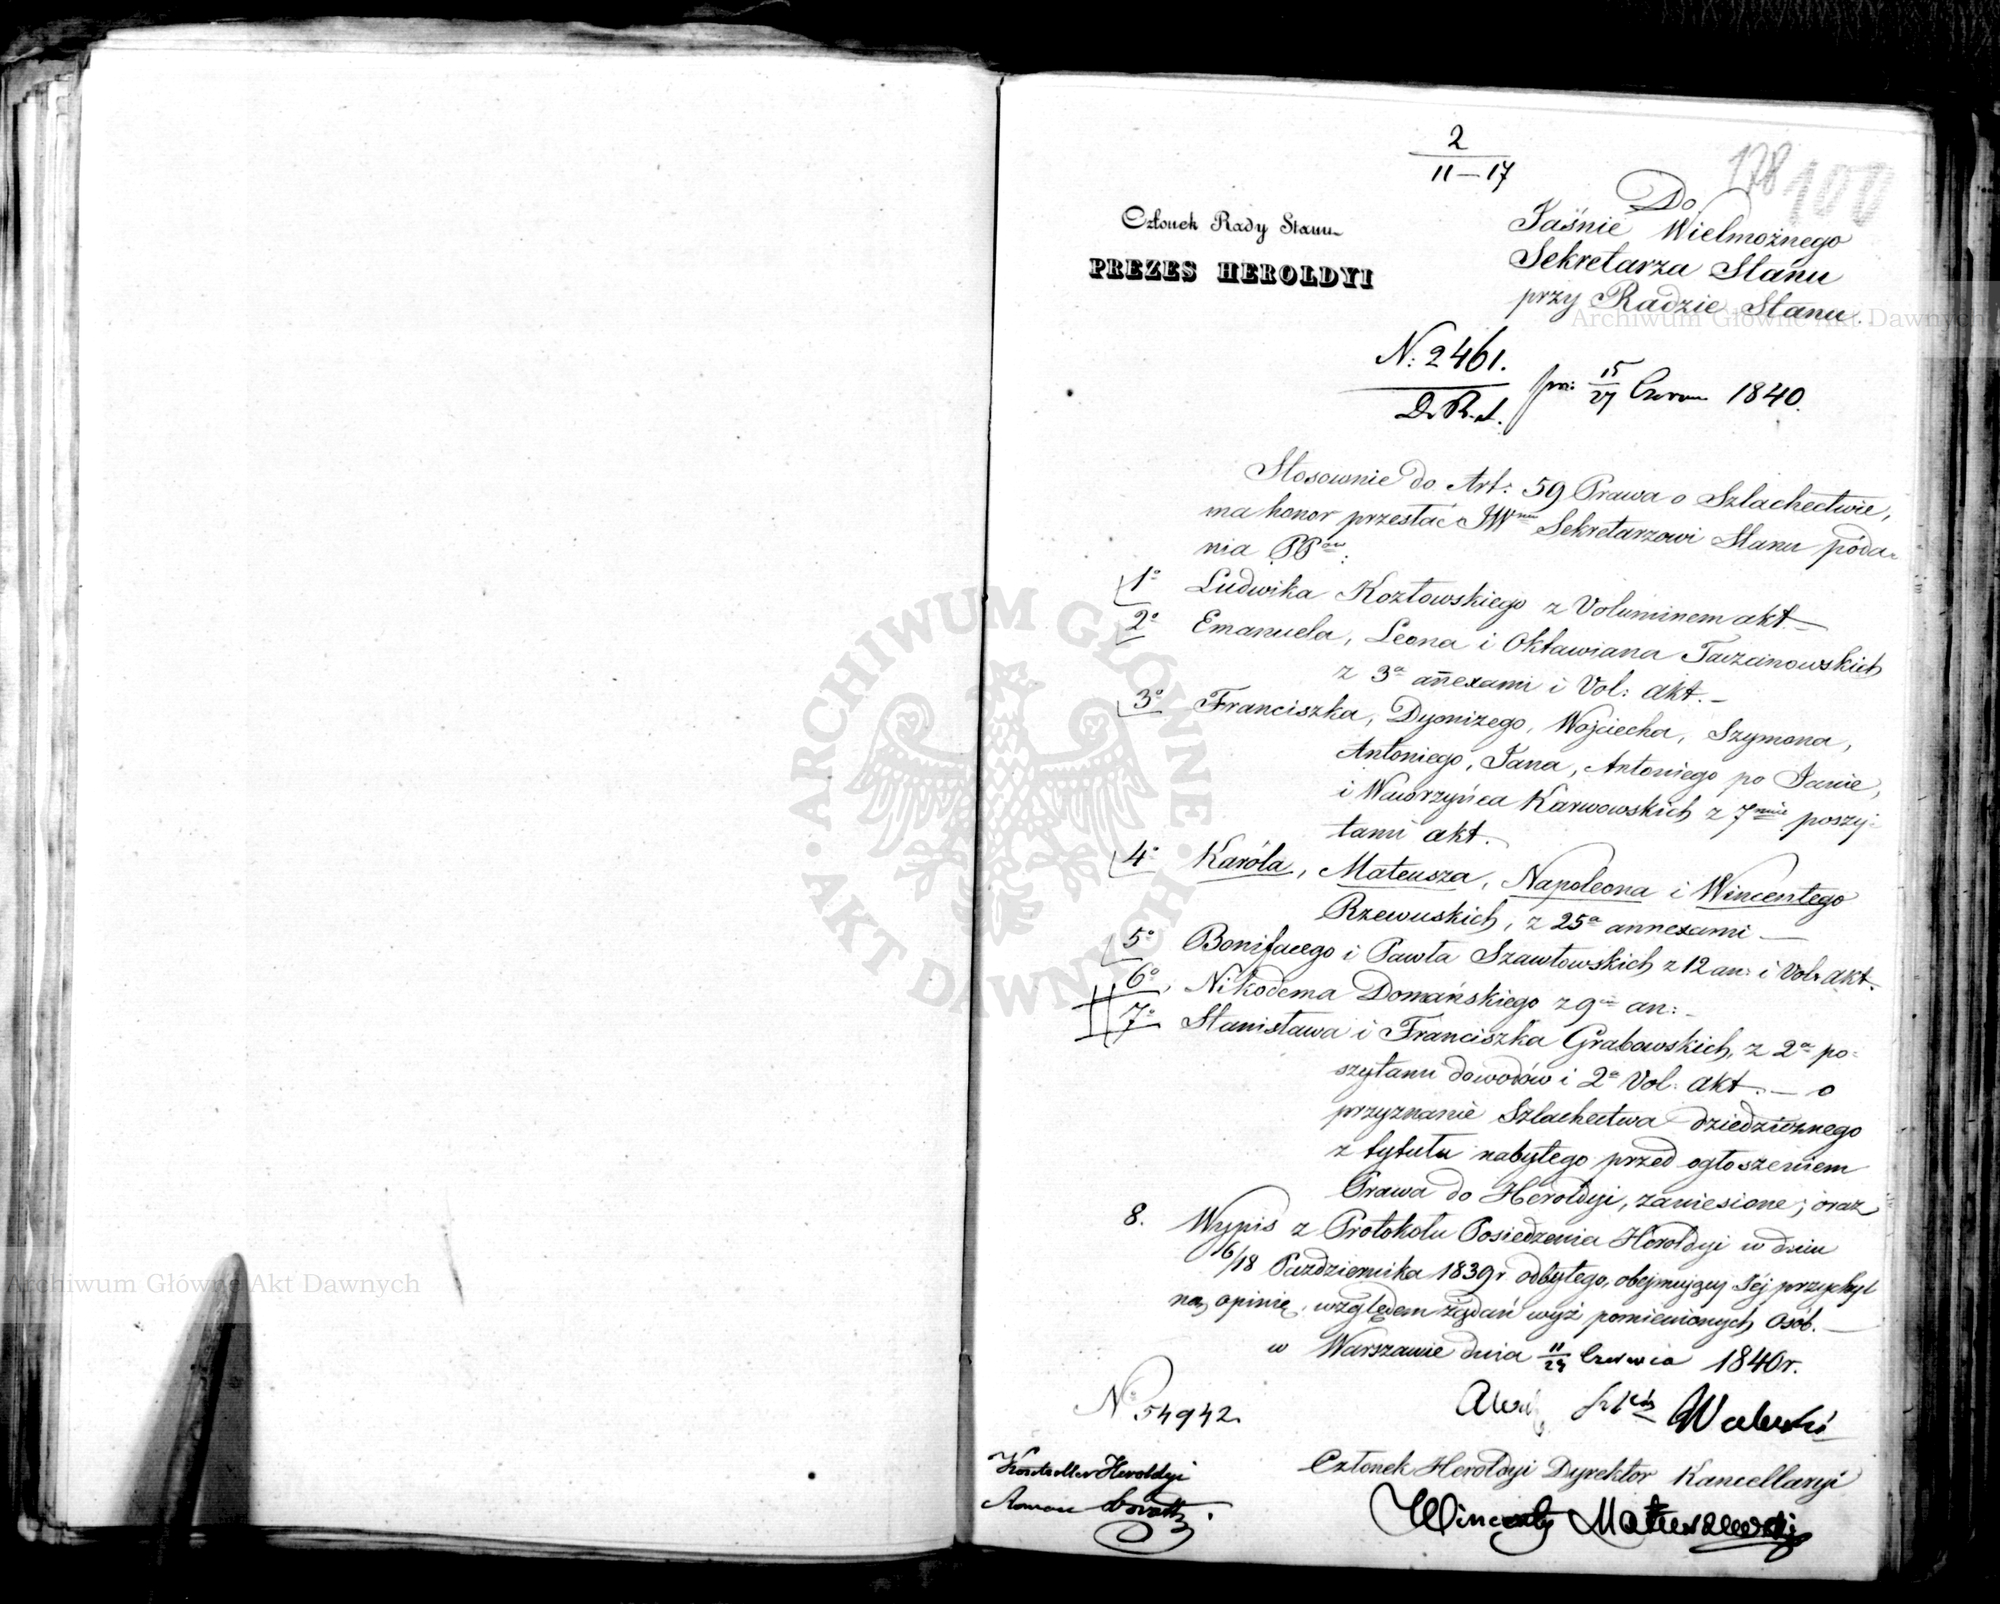 2
11 — 17
178 100
Członek Rady Stanu
PREZES HEROLDYI
Do
Jaśnie Wielmożnego
Sekretarza Stanu
przy Radzie Stanu.
N: 2461.
D. R. S.
pr: 15/27 Czerw 1840.
Stosownie do Art: 59 Prawa o Szlachectwie,
ma honor przesłać JWmu Sekretarzowi Stanu poda-
nia PPów:
1o Ludwika Kozłowskiego z Voluminem akt. —
2o Emanuela, Leona i Oktawiana Tarzanowskich
z 3a annexami i Vol: akt. —
3o Franciszka, Dyonizego, Wojciecha, Szymona,
Antoniego, Jana, Antoniego po Janie,
i Wawrzyńca Karwowskich z 7miu poszy-
tami akt.
4o Karóla, Mateusza, Napoleona i Wincentego
Rzewuskich, z 25a annexami —
5o Bonifacego i Pawła Szawłowskich z 12 an: i Vol: akt.
6o Nikodema Domańskiego z 9ciu an: —
7o Stanisława i Franciszka Grabowskich, z 2a po-
szytami dowodów i 2a Vol: akt. — o
przyznanie Szlachectwa dziedzicznego
z tytułu nabytego przed ogłoszeniem
Prawa do Heroldyi, zaniesione; oraz
8. Wypis z Protokołu Posiedzenia Heroldyi w dniu
6/18 Października 1839 r. odbytego, obejmujący Jéj przychyl
ną opinię, względem żądań wyż pomienionych Osób. —
w Warszawie dnia 11/23 Czerwca 1840 r.
No 54942.
Walewski
Kontroller Heroldyi
Roman
Członek Heroldyi Dyrektor Kancellaryi
Wincenty Matuszewski
ARCHIWUM GŁÓWNE · AKT DAWNYCH ·
Archiwum Główne Akt Dawnych
Archiwum Główne Akt Dawnych